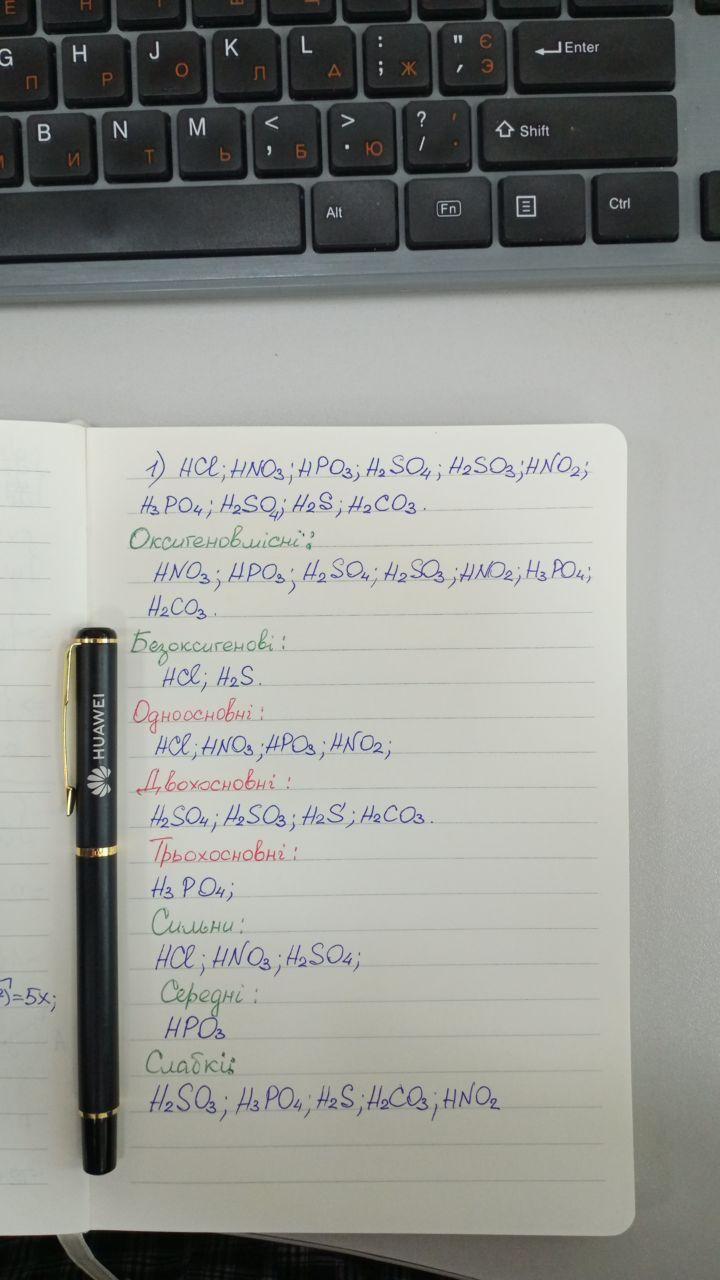 G П H Р J О K Л L Д : ; Ж " , Є Э Enter
B И N Т M Ь < , Б > . Ю ? / ' . Shift
Alt Fn Ctrl
1) HCl; HNO₃; HPO₃; H₂SO₄; H₂SO₃; HNO₂;
H₃PO₄; H₂SO₄; H₂S; H₂CO₃.
Оксигеновмісні:
HNO₃; HPO₃; H₂SO₄; H₂SO₃; HNO₂; H₃PO₄;
H₂CO₃.
Безоксигенові:
HCl; H₂S.
Одноосновні:
HCl; HNO₃; HPO₃; HNO₂;
Двохосновні:
H₂SO₄; H₂SO₃; H₂S; H₂CO₃.
Трьохосновні:
H₃PO₄;
Сильни:
HCl; HNO₃; H₂SO₄;
Середні:
HPO₃
Слабкі:
H₂SO₃; H₃PO₄; H₂S; H₂CO₃; HNO₂
=5x;
HUAWEI